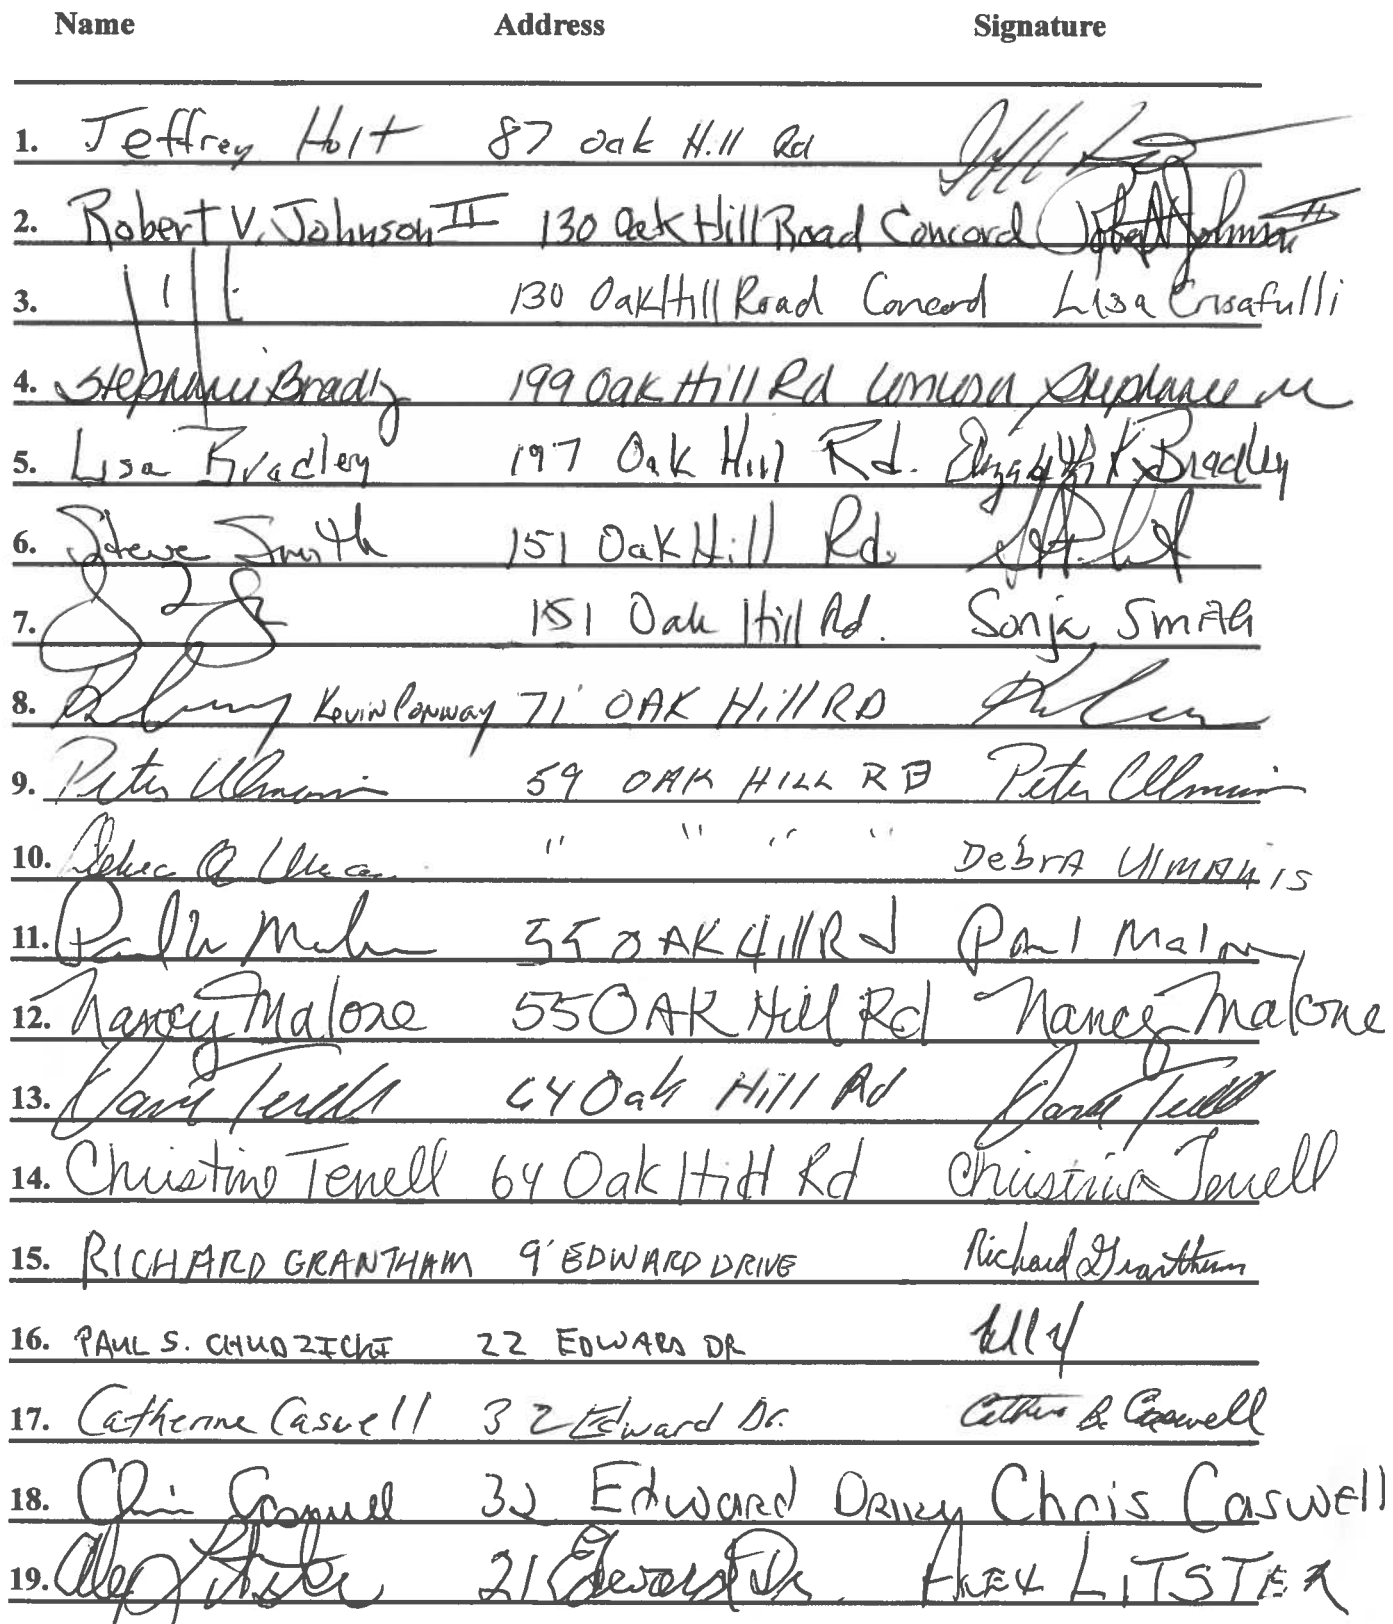 Name Address Signature
1. Jeffrey Holt 87 Oak Hill Rd
2. Robert V. Johnson II 130 Oak Hill Road Concord Robert Johnson II
3. 130 Oak Hill Road Concord Lisa Crisafulli
4. Stephanie Bradly 199 Oak Hill Rd Concord Stephanie
5. Lisa Bradley 197 Oak Hill Rd. Elizabeth K Bradley
6. Steve Smith 151 Oak Hill Rd.
7. 151 Oak Hill Rd. Sonja Smith
8. Kevin Conway 71 OAK Hill RD
9. Peter Ulmanis 59 OAK HILL RD Peter Ulmanis
10. " " " " DebrA UlmANis
11. Paul Malone 55 OAK Hill Rd Paul Malone
12. Nancy Malone 55 OAK Hill Rd Nancy Malone
13. David Terrell 64 Oak Hill Rd David Terrell
14. Christina Terrell 64 Oak Hill Rd Christina Terrell
15. RICHARD GRANTHAM 9 EDWARD DRIVE Richard Grantham
16. PAUL S. CHUDZICKI 22 EDWARD DR
17. Catherine Caswell 32 Edward Dr. Catherine B. Caswell
18. Chris Caswell 32 Edward Drive Chris Caswell
19. Alex Litster 21 Edward Dr. ALEX LITSTER